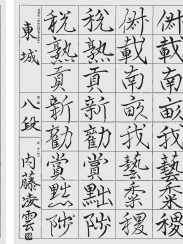 俶載南畝我藝黍稷
税熟貢新勸賞黜陟
東城
八段
内藤凌雲